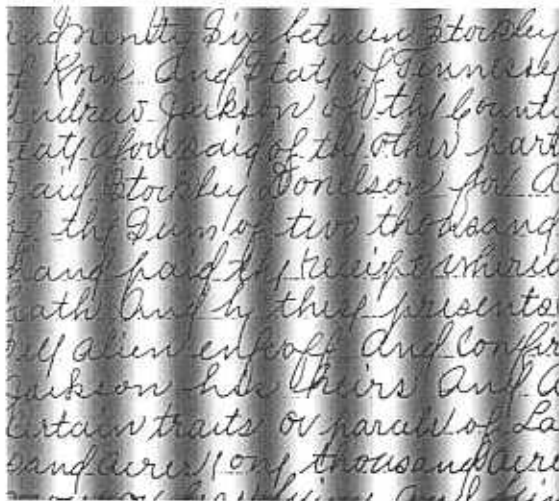 and ninity Six between Stockley
of Knox And State of Tennessee
Andrew Jackson of the Count
State aforesaid of the other part
Said Stockley Donelson for A
of the Sum of two thousand
hand paid the receipt wheric
hath And by these presents
Sell alien enfeoff And Confir
Jackson his heirs And A
Certain traits or parcels of La
sand acres one thousand acre